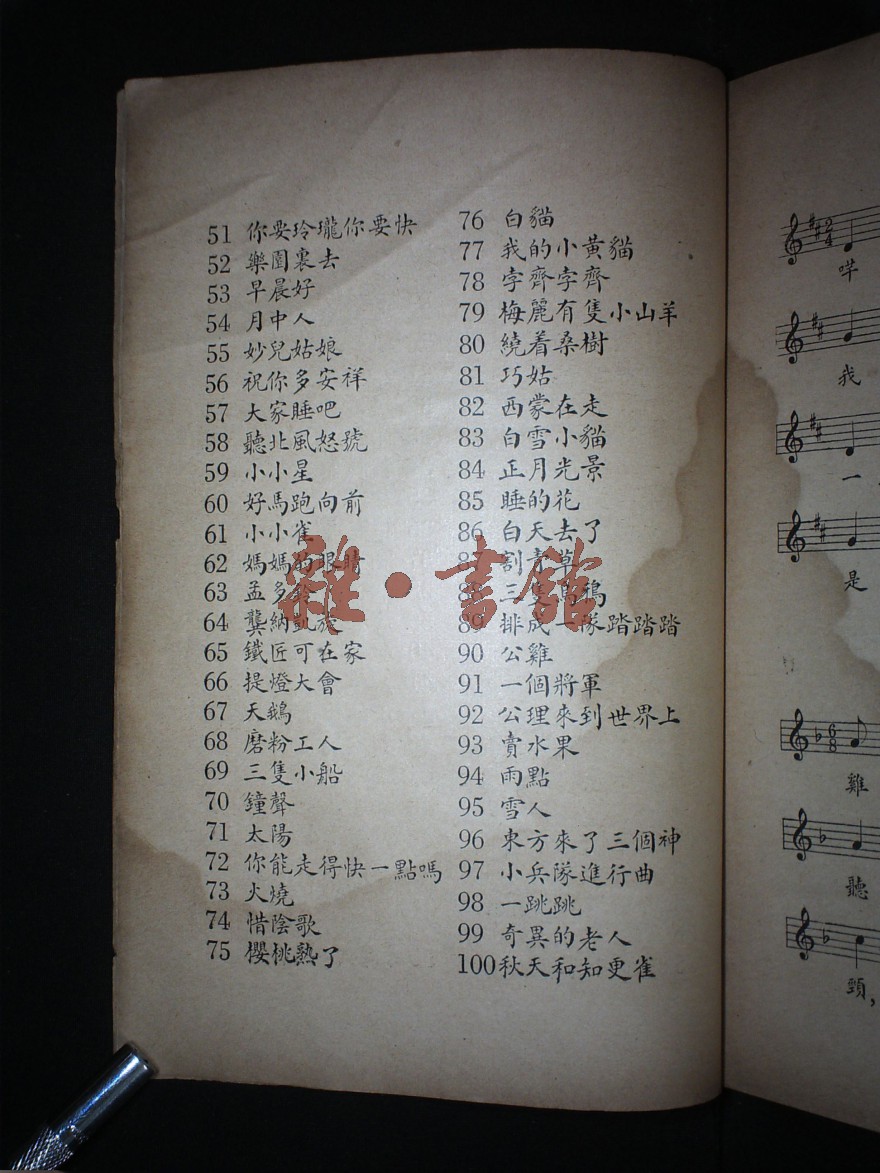 51 你要玲瓏你要快
52 樂園裏去
53 早晨好
54 月中人
55 妙兒姑娘
56 祝你多安祥
57 大家睡吧
58 聽北風怒號
59 小小星
60 好馬跑向前
61 小小雀
62 媽媽的眼睛
63 孟多
64 龔納凱旋
65 鐵匠可在家
66 提燈大會
67 天鵝
68 磨粉工人
69 三隻小船
70 鐘聲
71 太陽
72 你能走得快一點嗎
73 火燒
74 惜陰歌
75 櫻桃熟了
76 白貓
77 我的小黃貓
78 字齊字齊
79 梅麗有隻小山羊
80 繞着桑樹
81 巧姑
82 西蒙在走
83 白雪小貓
84 正月光景
85 睡的花
86 白天去了
87 割青草
88 三隻烏鴉
89 排成一隊踏踏踏
90 公雞
91 一個將軍
92 公理來到世界上
93 賣水果
94 雨點
95 雪人
96 東方來了三個神
97 小兵隊進行曲
98 一跳跳
99 奇異的老人
100 秋天和知更雀
雜·書館
2/4
咩
我
一
是
6/8
雞
聽
頸，